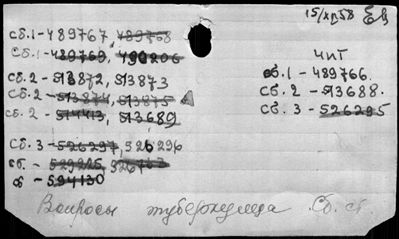 15/XII 58
сб. 1-489767, 489768
сб. 1-489769, 490206
сб. 2 - 513872, 513873
сб. 2 - 513874, 513875
сб. 2 - 514413, 513689
сб. 3 - 526297, 526296
сб. - 529225, 526763
сб - 594130
чит
сб. 1 - 489766.
сб. 2 - 513688.
сб. 3 - 526295
Вопросы туберкулеза Сб. ст.